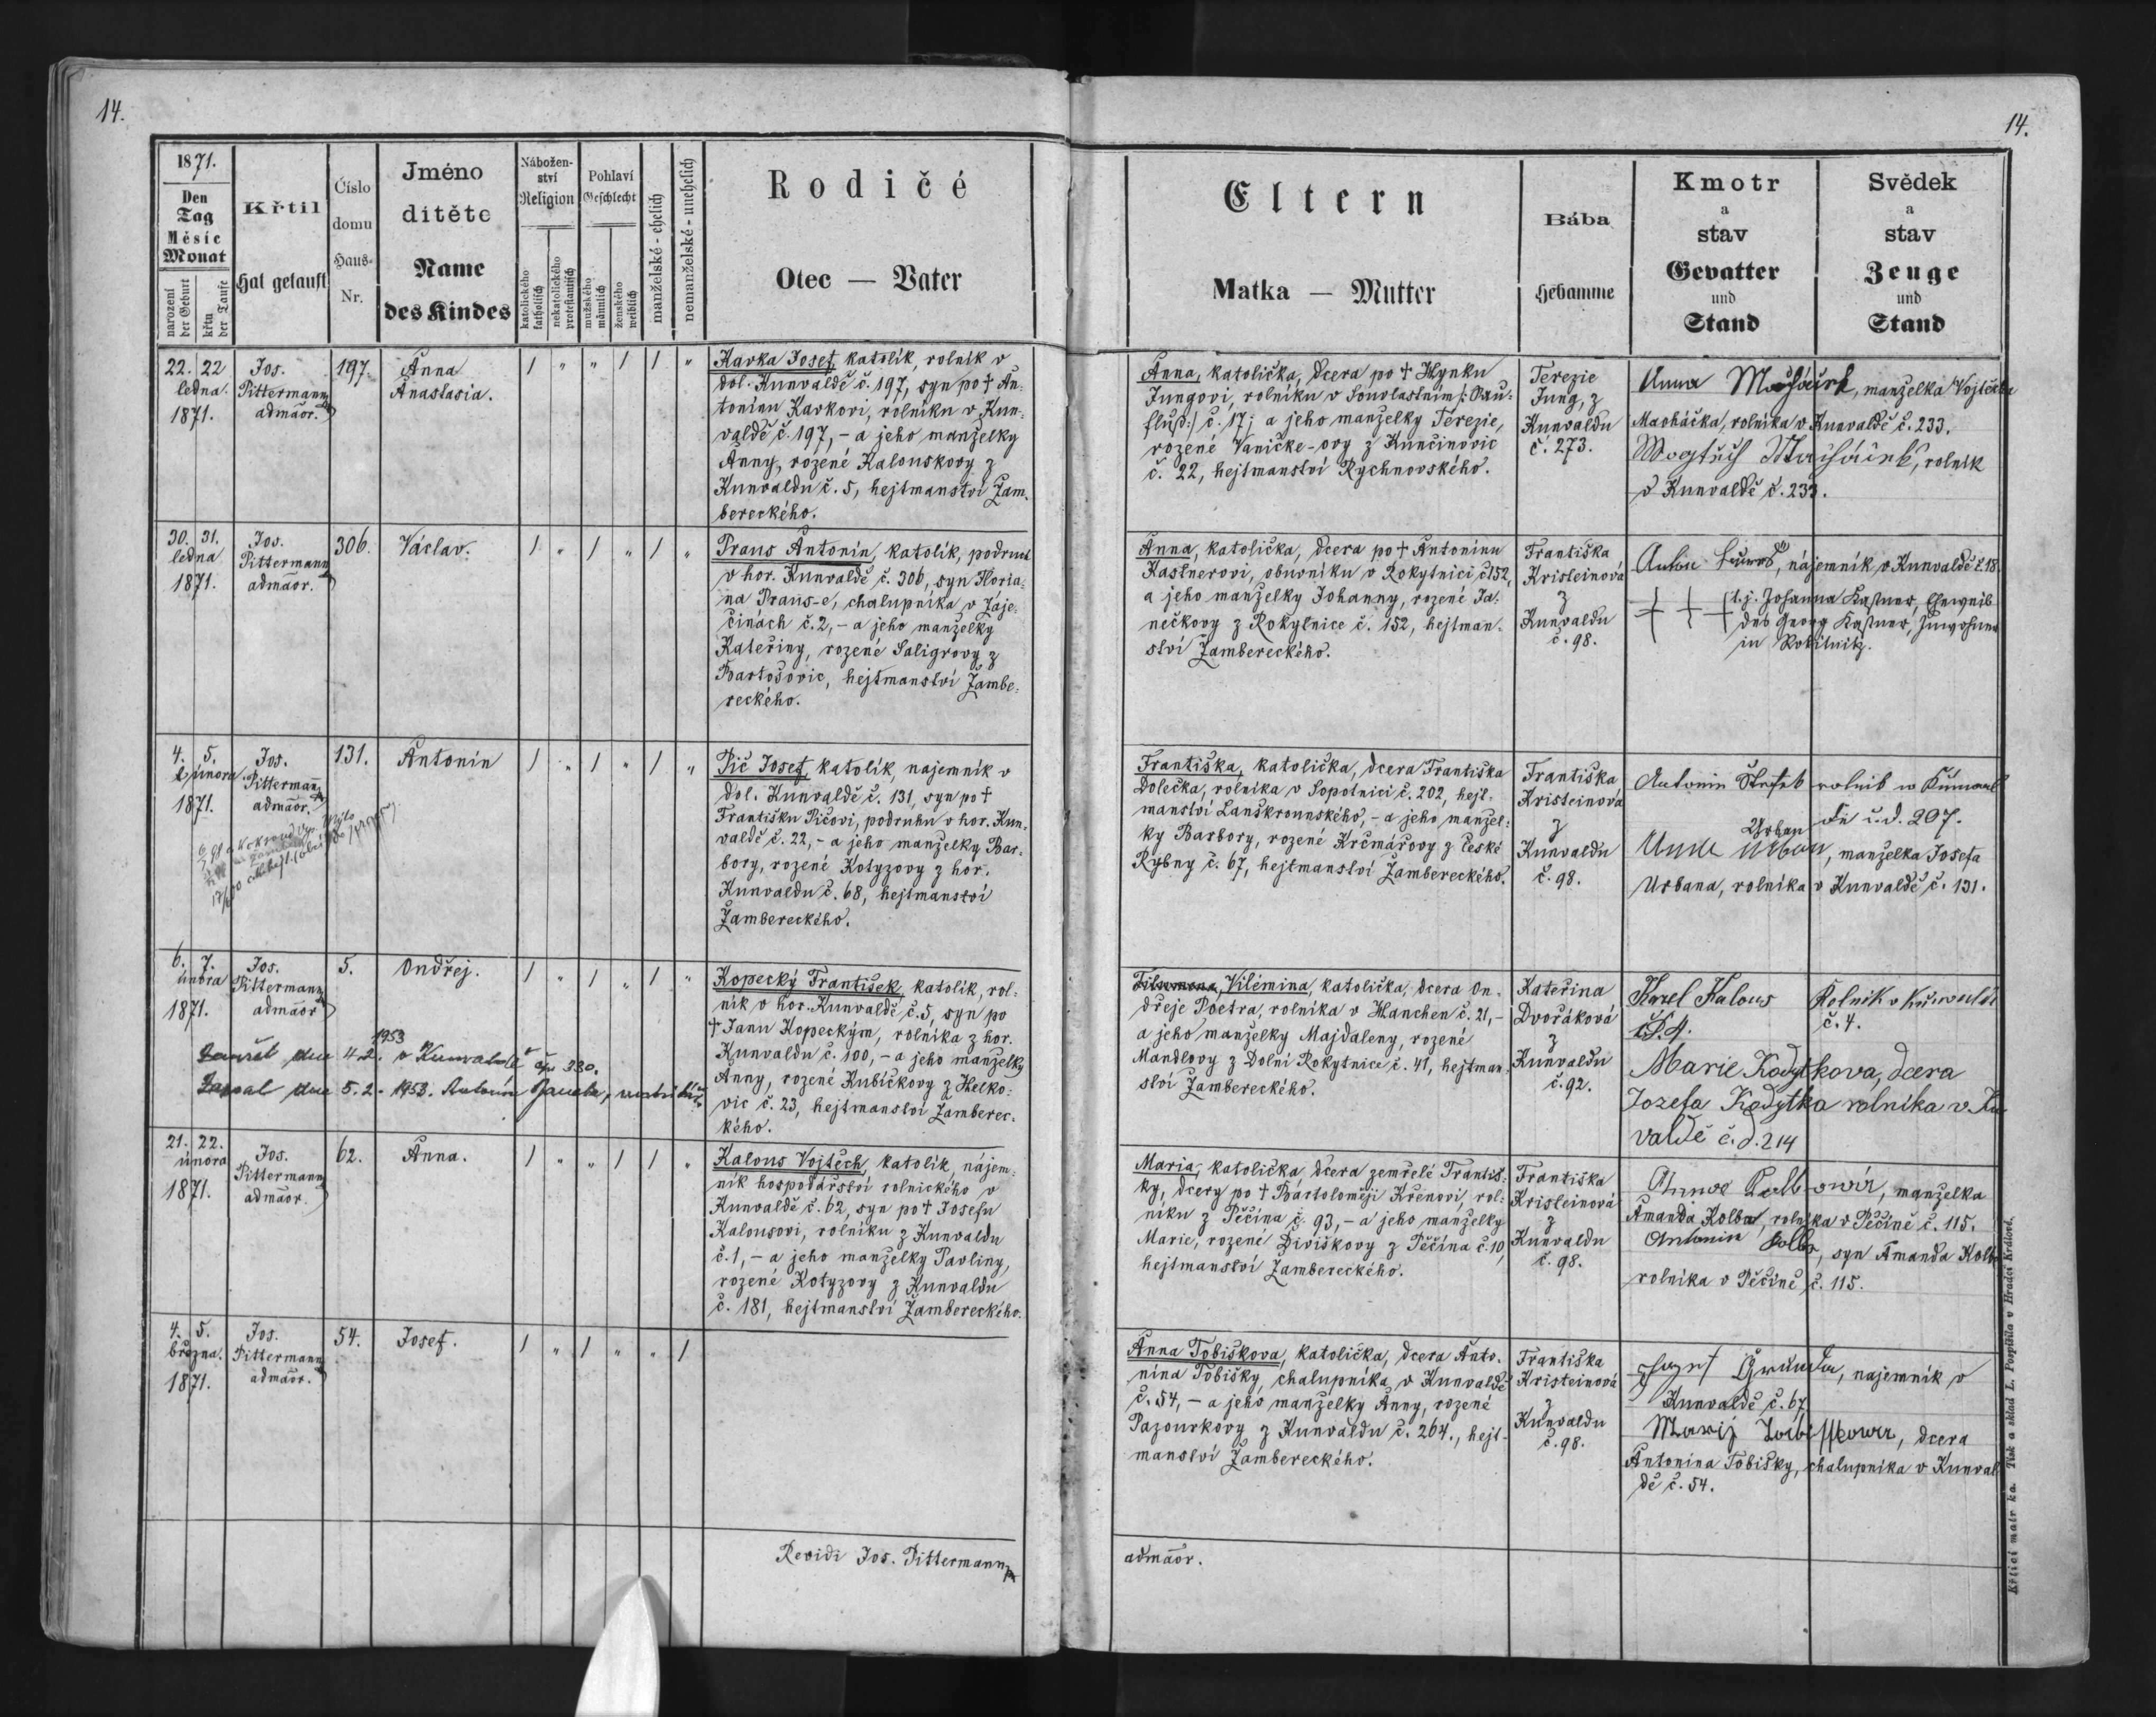 14.
14.
1871.
Den
Tag
Měsíc
Monat
narození
der Geburt
křtu
der Taufe
Křtil
Hat getauft
Číslo
domu
Haus-
Nr.
Jméno
dítěte
Name
des Kindes
Nábožen-
ství
Religion
katolického
katholisch
nekatolického
protestantisch
Pohlaví
Geschlecht
mužského
männlich
ženského
weiblich
manželské - ehelich
nemanželské - unehelich
Rodičé
Otec — Vater
Eltern
Matka — Mutter
Bába
Hebamme
Kmotr
a
stav
Gevatter
und
Stand
Svědek
a
stav
Zeuge
und
Stand
22. 22
ledna.
1871.
Jos.
Pittermann
admāor.
197.
Anna
Anastasia.
/ „ „ / / „
Kavka Josef, katolík, rolník v
dol. Kunvaldě č. 197, syn po † An-
tonínu Kavkovi, rolníku v Kun-
valdě č. 197, – a jeho manželky
Anny, rozené Kalouskovy z
Kunvaldu č. 5, hejtmanství Žam-
bereckého.
Anna, katolička, dcera po † Hynku
Jungovi, rolníku v Souvlastním
č. 17; a jeho manželky Terezie,
rozené Vaničke-ovy z Kunčinovic
č. 22, hejtmanství Rychnovského.
Terezie
Jung, z
Kunvaldu
č. 273.
Anna Macháček, manželka Vojtěcha
Macháčka, rolníka v Kunvaldě č. 233.
Wogtěch Macháček, rolník
v Kunvaldě č. 233.
30. 31.
ledna
1871.
Jos.
Pittermann
admāor.
306.
Václav.
/ „ / „ / „
Prans Antonín, katolík, podruh
v hor. Kunvaldě č. 306, syn Floria-
na Prans-e, chalupníka v Záje-
činách č. 2, – a jeho manželky
Kateřiny, rozené Saligrovy z
Bartošovic, hejtmanství Žambe-
reckého.
Anna, katolička, dcera po † Antonínu
Kastnerovi, obuvníku v Rokytnici č. 152,
a jeho manželky Johanny, rozené Ja-
nečkovy z Rokytnice č. 152, hejtman-
ství Žambereckého.
Františka
Kristeinová
z
Kunvaldu
č. 98.
Anton, nájemník v Kunvaldě č. 18.
+ + + t. j. Johanna Kastner, Eheweib
des Georg Kastner, Inwohner
in Rokitnitz.
4. 5.
února.
1871.
Jos.
Pittermann
admāor.
131.
Antonín
/ „ / „ / „
Pič Josef, katolík, najemník v
dol. Kunvaldě č. 131, syn po †
Františku Pičovi, podruhu v hor. Kun-
valdě č. 22, – a jeho manželky Bar-
bory, rozené Kotyzovy z hor.
Kunvaldu č. 68, hejtmanství
Žambereckého.
Františka, katolička, dcera Františka
Dolečka, rolníka v Sopotnici č. 202, hejt-
manství Lanškrounského, – a jeho manžel-
ky Barbory, rozené Krčmářovy z České
Rybny č. 67, hejtmanství Žambereckého.
Františka
Kristeinová
z
Kunvaldu
č. 98.
Antonin rolnik w Kunwal
č.d. 207.
Urban
Anna Urban, manželka Josefa
Urbana, rolníka v Kunvaldě č. 131.
6. 7.
února
1871.
Jos.
Pittermann
admāor
5.
Ondřej.
/ „ / „ / „
Zemřel dne 4.2. 1953 v Kunvaldě čp. 330.
Zapsal dne 5.2. 1953. Antonín
Kopecký František, katolík, rol-
ník v hor. Kunvaldě č. 5, syn po
† Janu Kopeckým, rolníka z hor.
Kunvaldu č. 100, – a jeho manželky
Anny, rozené Kubíčkovy z Helko-
vic č. 23, hejtmanství Žamberec-
kého.
Filomena, Vilémina, katolička, dcera On-
dřeje Poetra, rolníka v Hanchen č. 21, –
a jeho manželky Majdaleny, rozené
Mandlovy z Dolní Rokytnice č. 41, hejtman-
ství Žambereckého.
Kateřina
Dvořáková
z
Kunvaldu
č. 92.
Karel Kalous Rolnik v Kunvaldě
č. 4.
Marie Kodytkova, dcera
Jozefa Kodytka rolníka v Kun
valdě č.d. 214
21. 22.
února
1871.
Jos.
Pittermann
admāor.
62.
Anna.
/ „ „ / / „
Kalous Vojtěch, katolík, nájem-
ník hospodářství rolnického v
Kunvaldě č. 62, syn po † Josefu
Kalousovi, rolníku z Kunvaldu
č. 1, – a jeho manželky Pavliny,
rozené Kotyzovy z Kunvaldu
č. 181, hejtmanství Žambereckého.
Maria, katolička, dcera zemřelé Františ-
ky, dcery po † Bartoloměji Křenovi, rol-
níku z Pěčína č. 93, – a jeho manželky
Marie, rozené Divíškovy z Pěčína č. 10,
hejtmanství Žambereckého.
Františka
Kristeinová
z
Kunvaldu
č. 98.
Anna Kolbowá, manželka
Amanda Kolba, rolníka v Pěčíně č. 115.
Antonin Kolba, syn Amanda Kolba
rolníka v Pěčíně č. 115.
4. 5.
března.
1871.
Jos.
Pittermann
admāor.
54.
Josef.
/ „ / „ „ /
Anna Tobiškova, katolička, dcera Anto-
nína Tobišky, chalupníka v Kunvaldě
č. 54, – a jeho manželky Anny, rozené
Pazourkovy z Kunvaldu č. 264., hejt-
manství Žambereckého.
Františka
Kristeinová
z
Kunvaldu
č. 98.
Jozef, najemník v
Kunvaldě č. 67
Marij Tobisskowa, dcera
Antonína Tobišky, chalupníka v Kunval
dě č. 54.
Revidi Jos. Pittermann
admāor.
Křticí matrika. Tisk a sklad L. Pospíšila v Hradci Králové.